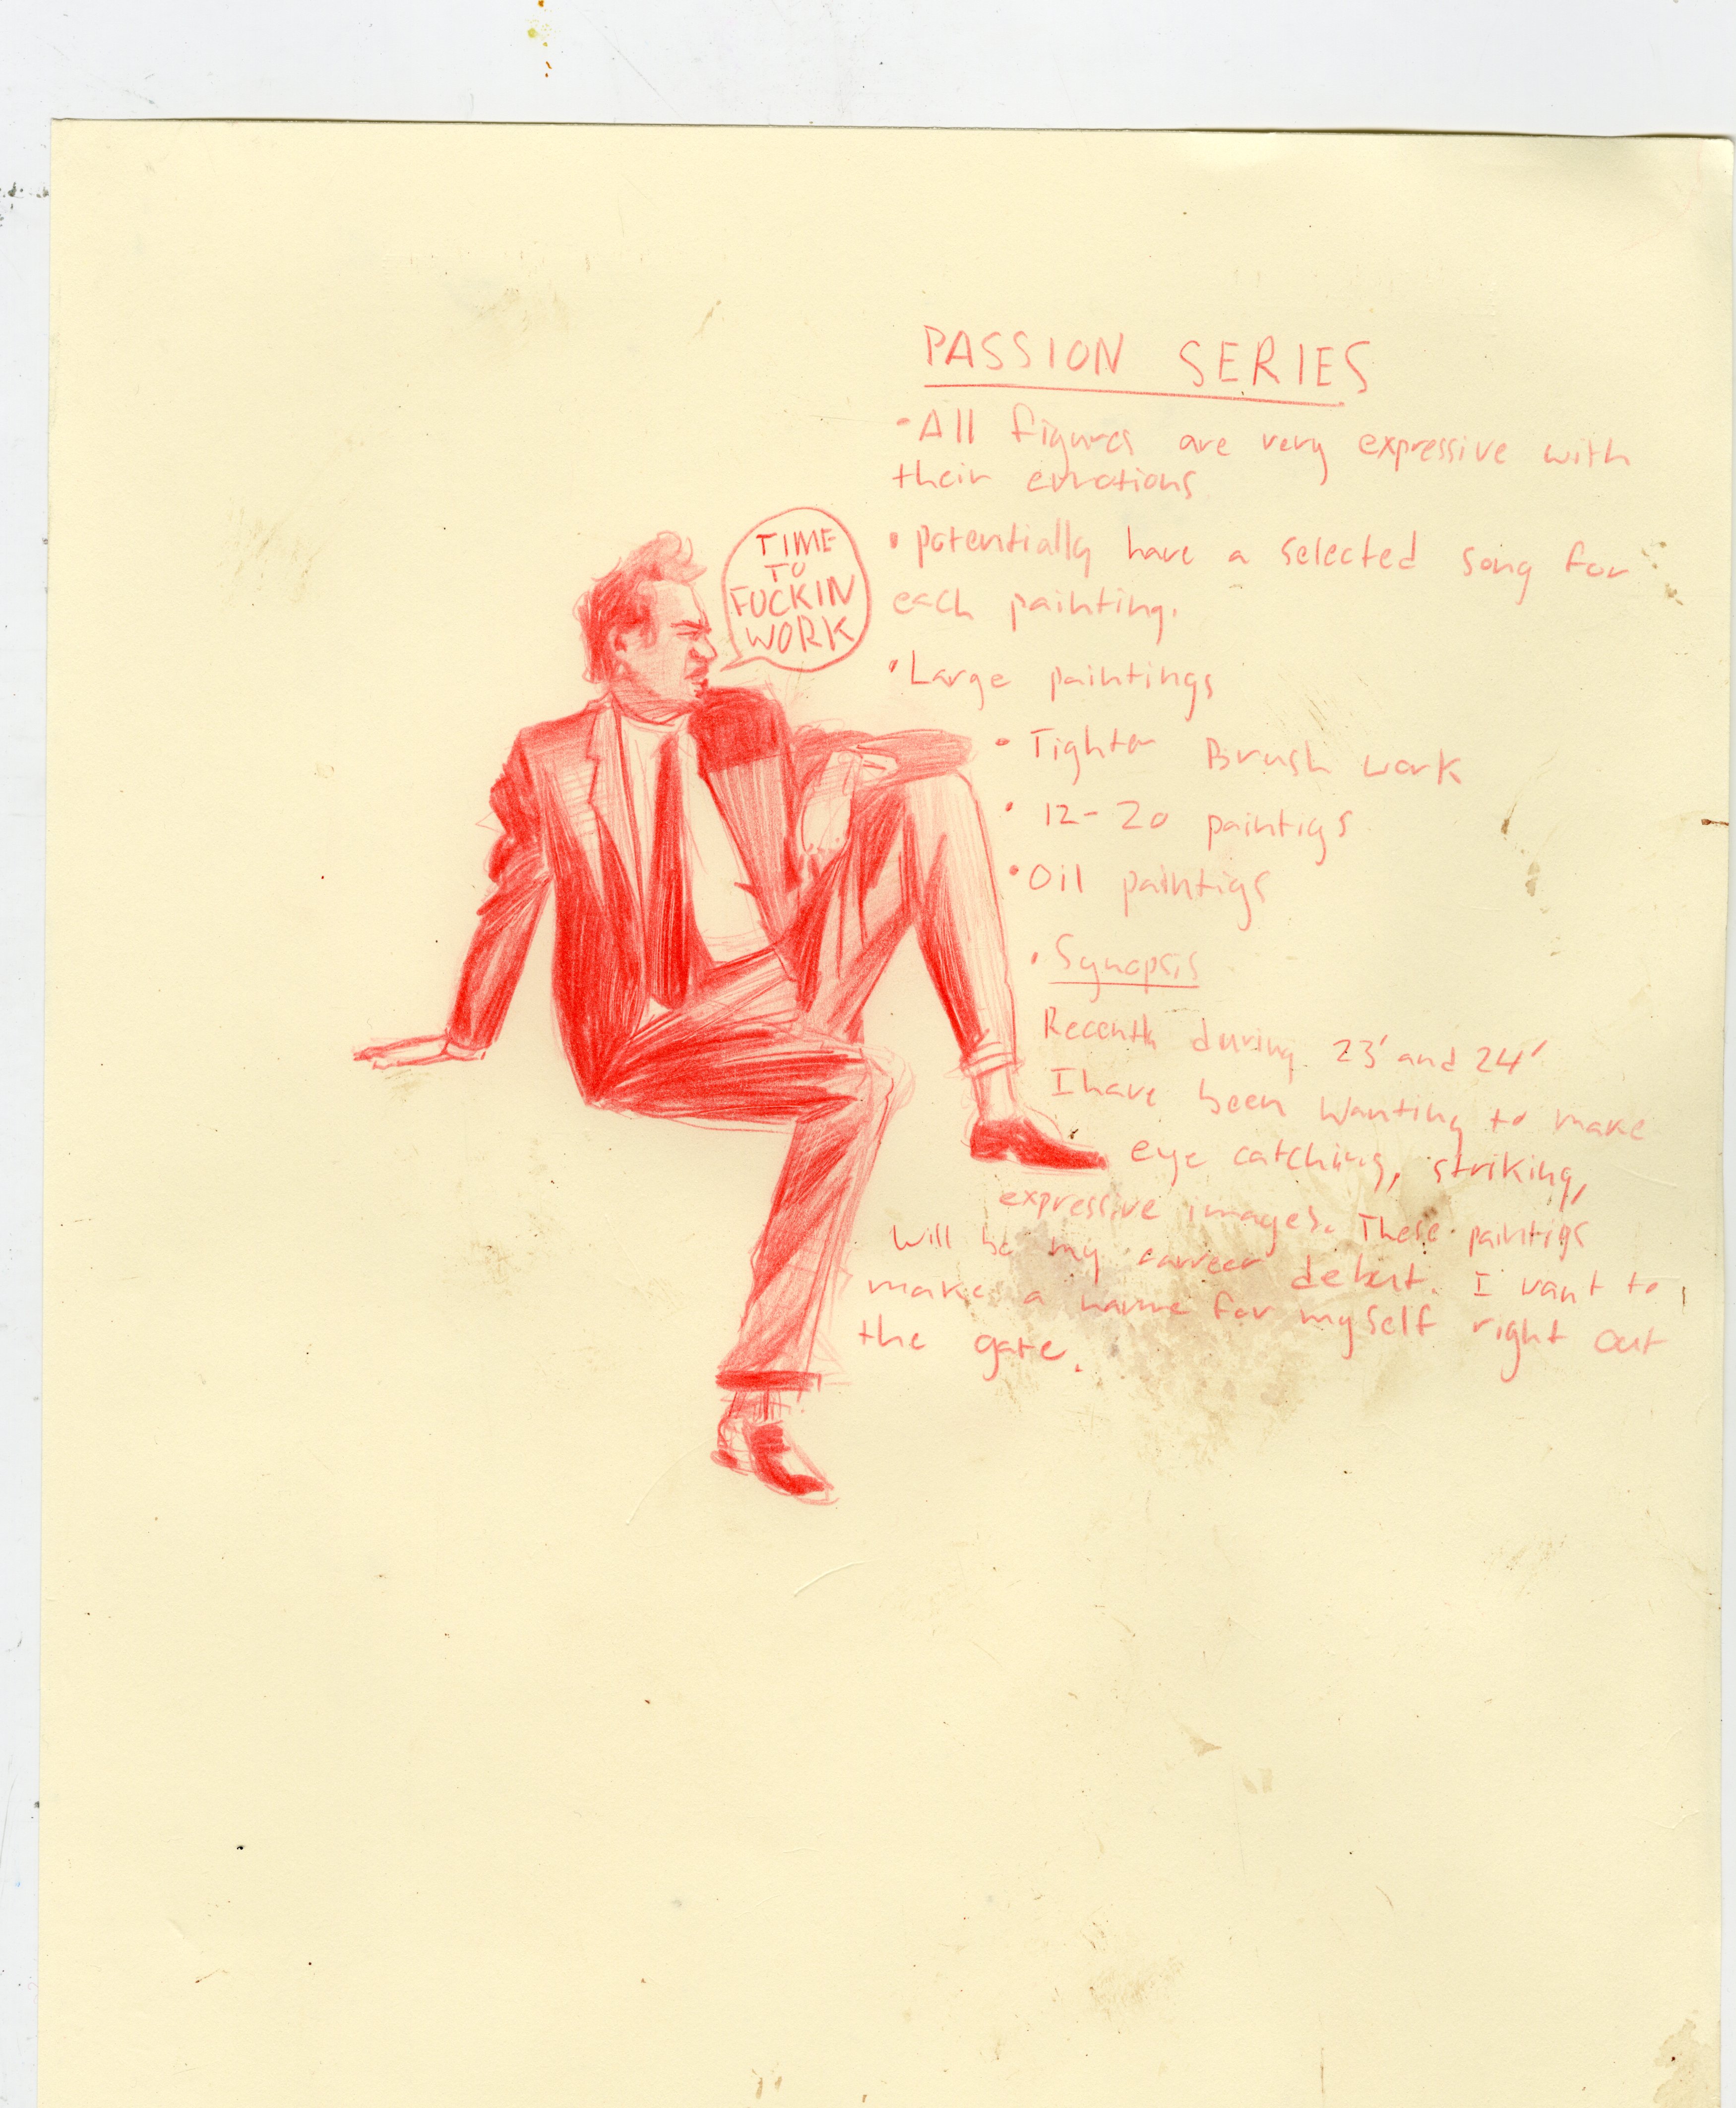 PASSION SERIES
•All figures are very expressive with
their emotions
TIME
TO
FUCKIN
WORK
•potentially have a selected song for
each painting.
•Large paintings
•Tighter Brush work
•12-20 paintigs
•Oil paintigs
•Synopsis
Recently during 23' and 24'
I have been wanting to make
eye catching, striking,
expressive images. These paintigs
will be my carreer debut. I want to
make a name for myself right out
the gate.